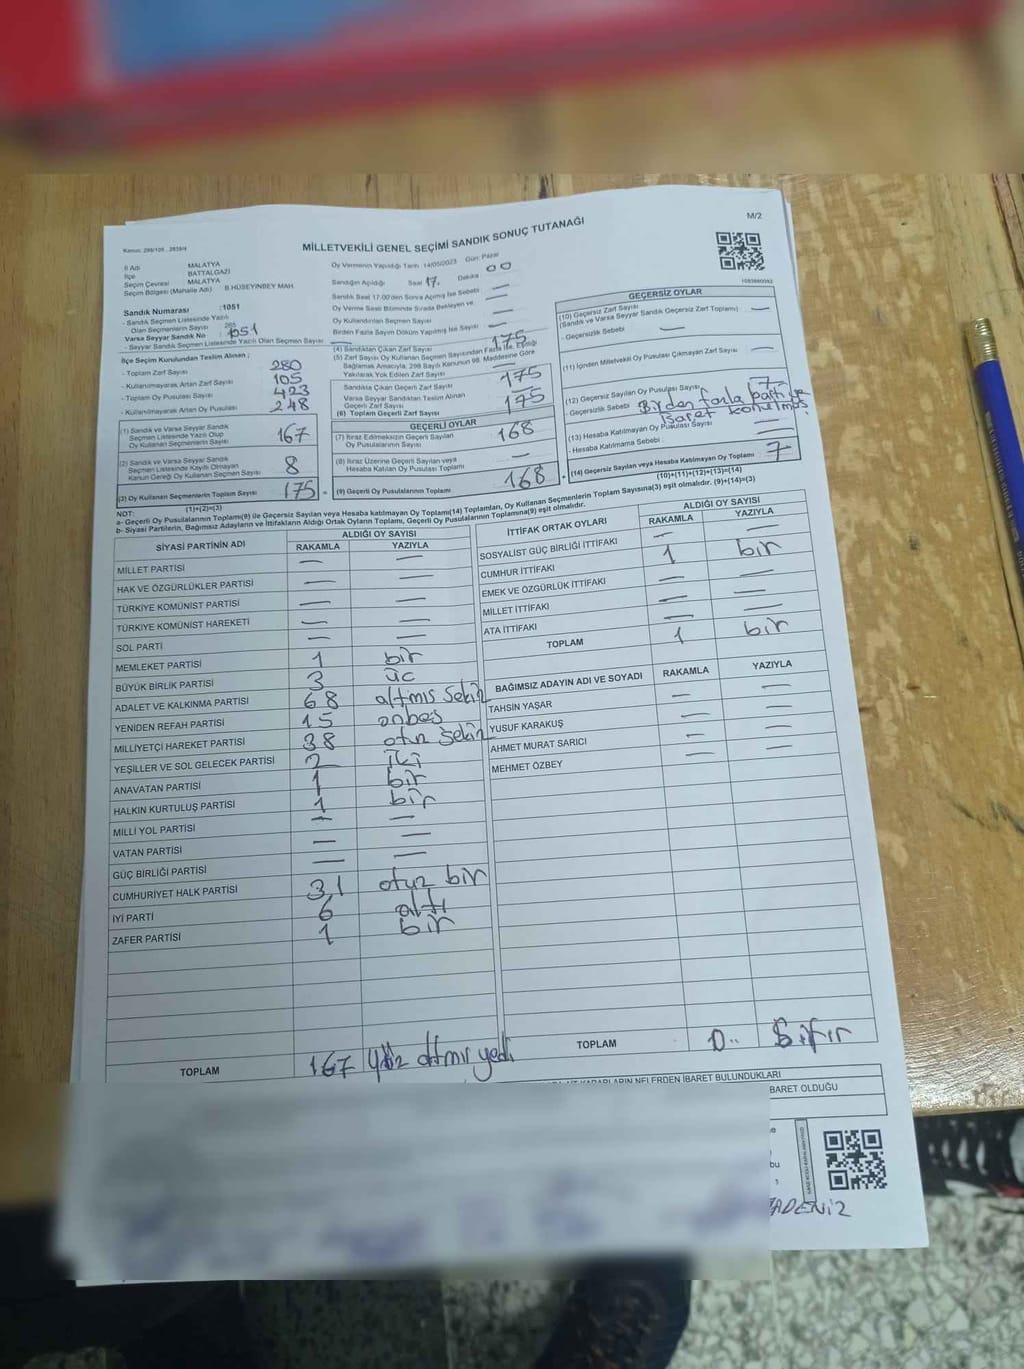 M/2
Kanun: 298/105 , 2839/4
MİLLETVEKİLİ GENEL SEÇİMİ SANDIK SONUÇ TUTANAĞI
İl Adı MALATYA
İlçe BATTALGAZİ
Seçim Çevresi MALATYA
Seçim Bölgesi (Mahalle Adı) B.HÜSEYİNBEY MAH.
Sandık Numarası :1051
- Sandık Seçmen Listesinde Yazılı
Olan Seçmenlerin Sayısı 265
Varsa Seyyar Sandık No 1051
- Seyyar Sandık Seçmen Listesinde Yazılı Olan Seçmen Sayısı —
Oy Vermenin Yapıldığı Tarih 14/05/2023 Gün: Pazar
Sandığın Açıldığı Saat 17. Dakika 00
Sandık Saat 17.00'den Sonra Açılmış İse Sebebi —
Oy Verme Saati Bitiminde Sırada Bekleyen ve
Oy Kullandırılan Seçmen Sayısı —
Birden Fazla Sayım Döküm Yapılmış İse Sayısı —
İlçe Seçim Kurulundan Teslim Alınan ;
- Toplam Zarf Sayısı 280
- Kullanılmayarak Artan Zarf Sayısı 105
- Toplam Oy Pusulası Sayısı 423
- Kullanılmayarak Artan Oy Pusulası 248
(1) Sandık ve Varsa Seyyar Sandık
Seçmen Listesinde Yazılı Olup
Oy Kullanan Seçmenlerin Sayısı 167
(2) Sandık ve Varsa Seyyar Sandık
Seçmen Listesinde Kayıtlı Olmayan
Kanun Gereği Oy Kullanan Seçmen Sayısı 8
(3) Oy Kullanan Seçmenlerin Toplam Sayısı 175 =
(1)+(2)=(3)
(4) Sandıktan Çıkan Zarf Sayısı 175
(5) Zarf Sayısı Oy Kullanan Seçmen Sayısından Fazla İse, Eşitliği
Sağlamak Amacıyla, 298 Sayılı Kanunun 98. Maddesine Göre
Yakılarak Yok Edilen Zarf Sayısı —
Sandıkta Çıkan Geçerli Zarf Sayısı 175
Varsa Seyyar Sandıktan Teslim Alınan
Geçerli Zarf Sayısı
(6) Toplam Geçerli Zarf Sayısı 175
GEÇERLİ OYLAR
(7) İtiraz Edilmeksizin Geçerli Sayılan
Oy Pusulalarının Sayısı 168
(8) İtiraz Üzerine Geçerli Sayılan veya
Hesaba Katılan Oy Pusulası Toplamı —
(9) Geçerli Oy Pusulalarının Toplamı 168 +
1083880092
GEÇERSİZ OYLAR
(10) Geçersiz Zarf Sayısı
(Sandık ve Varsa Seyyar Sandık Geçersiz Zarf Toplamı) —
- Geçersizlik Sebebi —
(11) İçinden Milletvekili Oy Pusulası Çıkmayan Zarf Sayısı —
(12) Geçersiz Sayılan Oy Pusulası Sayısı 7
- Geçersizlik Sebebi Birden fazla partiye
işaret konulmas
(13) Hesaba Katılmayan Oy Pusulası Sayısı —
- Hesaba Katılmama Sebebi : —
(14) Geçersiz Sayılan veya Hesaba Katılmayan Oy Toplamı 7
(10)+(11)+(12)+(13)=(14)
NOT:
a- Geçerli Oy Pusulalarının Toplamı(9) ile Geçersiz Sayılan veya Hesaba katılmayan Oy Toplamı(14) Toplamları, Oy Kullanan Seçmenlerin Toplam Sayısına(3) eşit olmalıdır. (9)+(14)=(3)
b- Siyasi Partilerin, Bağımsız Adayların ve İttifakların Aldığı Ortak Oyların Toplamı, Geçerli Oy Pusulalarının Toplamına(9) eşit olmalıdır.
SİYASİ PARTİNİN ADI
ALDIĞI OY SAYISI
RAKAMLA YAZIYLA
MİLLET PARTİSİ — —
HAK VE ÖZGÜRLÜKLER PARTİSİ — —
TÜRKİYE KOMÜNİST PARTİSİ — —
TÜRKİYE KOMÜNİST HAREKETİ — —
SOL PARTİ — —
MEMLEKET PARTİSİ 1 bir
BÜYÜK BİRLİK PARTİSİ 3 üç
ADALET VE KALKINMA PARTİSİ 68 altmış sekiz
YENİDEN REFAH PARTİSİ 15 onbeş
MİLLİYETÇİ HAREKET PARTİSİ 38 otuz sekiz
YEŞİLLER VE SOL GELECEK PARTİSİ 2 iki
ANAVATAN PARTİSİ 1 bir
HALKIN KURTULUŞ PARTİSİ 1 bir
MİLLİ YOL PARTİSİ — —
VATAN PARTİSİ — —
GÜÇ BİRLİĞİ PARTİSİ — —
CUMHURİYET HALK PARTİSİ 31 otuz bir
İYİ PARTİ 6 altı
ZAFER PARTİSİ 1 bir
TOPLAM 167 yüz altmış yedi
İTTİFAK ORTAK OYLARI
ALDIĞI OY SAYISI
RAKAMLA YAZIYLA
SOSYALİST GÜÇ BİRLİĞİ İTTİFAKI — —
CUMHUR İTTİFAKI 1 bir
EMEK VE ÖZGÜRLÜK İTTİFAKI — —
MİLLET İTTİFAKI — —
ATA İTTİFAKI — —
TOPLAM 1 bir
BAĞIMSIZ ADAYIN ADI VE SOYADI RAKAMLA YAZIYLA
TAHSİN YAŞAR — —
YUSUF KARAKUŞ — —
AHMET MURAT SARICI — —
MEHMET ÖZBEY — —
TOPLAM 0.. Sıfır
KARARLARIN NELERDEN İBARET BULUNDUKLARI
BARET OLDUĞU
bu
ADENİZ